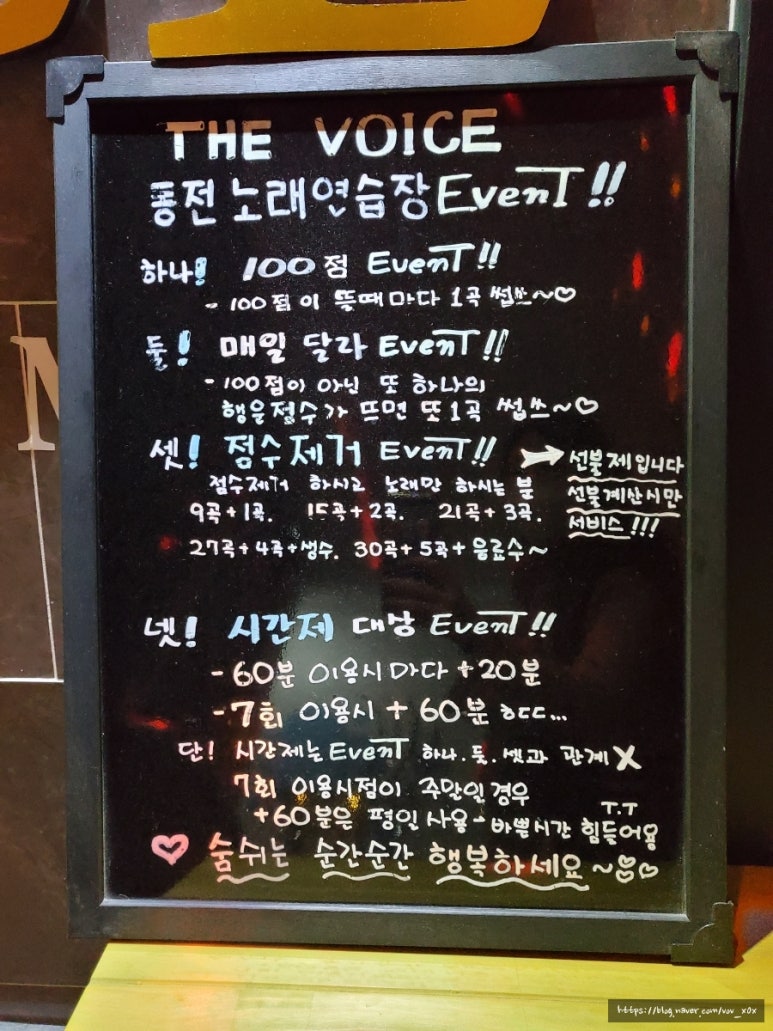 THE VOICE
동전 노래연습장 EvenT!!
하나! 100점 EvenT!!
- 100점이 뜰때마다 1곡 썹쓰~♡
둘! 매일 달라 EvenT!!
- 100점이 아닌 또 하나의
행운점수가 뜨면 또 1곡 썹쓰~♡
셋! 점수제거 EvenT!!
→ 선불제입니다
선불계산시만
서비스!!!
점수제거 하시고 노래만 하시는 분
9곡+1곡. 15곡+2곡. 21곡+3곡.
27곡+4곡+생수. 30곡+5곡+음료수~
넷! 시간제 대상 EvenT!!
- 60분 이용시마다 +20분
- 7회 이용시 + 60분 ㅎㄷㄷ...
단! 시간제는 EvenT 하나.둘.셋과 관계 X
7회 이용시점이 주말일 경우
+60분은 평일 사용 - 바쁜시간 힘들어용
T.T
♡ 숨쉬는 순간순간 행복하세요~♡♡
https://blog.naver.com/vov_x0x